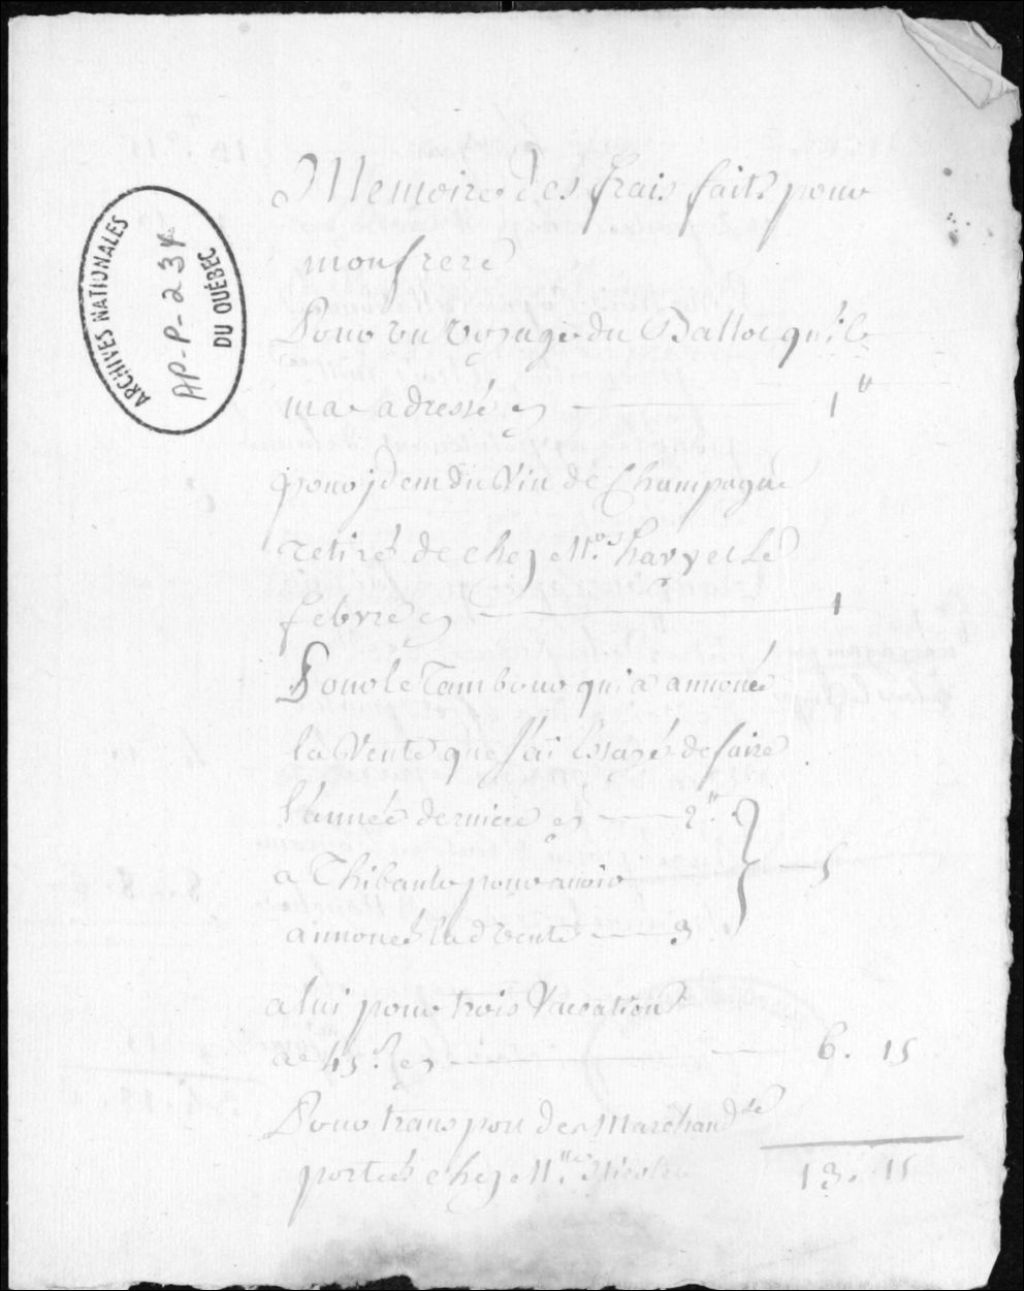 ARCHIVES NATIONALES
AP-P-234
DU QUÉBEC
Memoire des frais faits pour
mon frere
Pour un Voyage du Ballot qu'il
m'a adressé cy 1"
pour jdem du Vin de Champagne
retiré de chez Mrs Le
febvre cy 1
Pour le Tambour qui a annoncé
la Vente que J'ai Essayé de faire
l'année derniere cy 2"
a Thibault pour avoir 5
annoncé lad Vente 3
a lui pour trois Vacations
a 45s cy 6. 15
Pour transport des Marchandse
portées chez Mlle Nicolet 13. 15